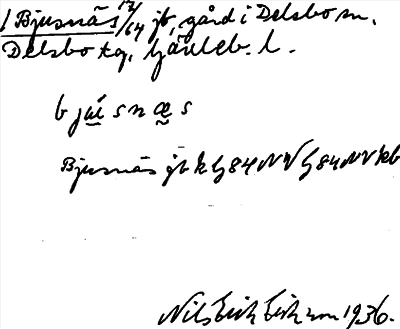 1 Bjusnäs 12/64 jb, gård i Delsbo sn.
Delsbo tg, Gävleb. l.
b jui s n æ s
Bjusnäs jb k G 84 NV G 84 NV kb
Nils Erik Eriksson 1936.